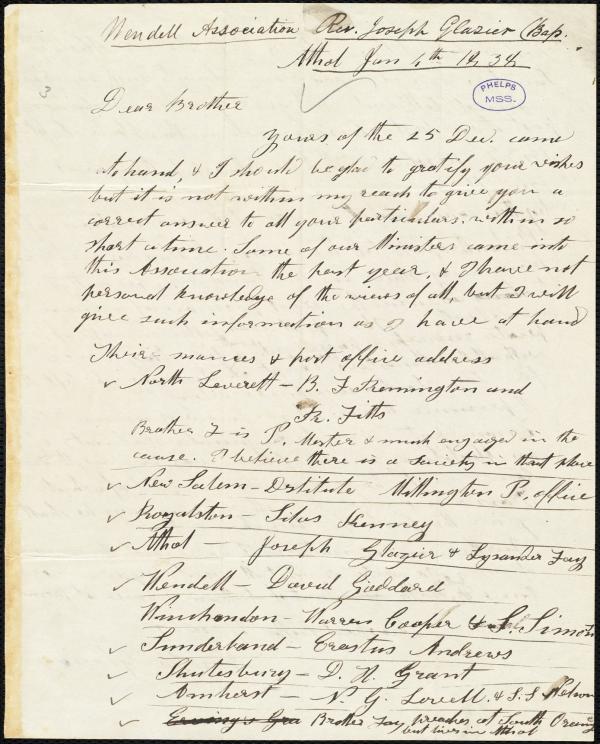 Wendell Association Rev. Joseph Glazier (Bap.
Athol Jan 4th 1838
PHELPS
MSS.
3
Dear Brother
Yours of the 25 Dec. came
to hand, & I should be glad to gratify your wishes
but it is not within my reach to give you a
correct answer to all your particulars, within so
short a time. Some of our Ministers came into
this Association the past year, & I have not
personal knowledge of the views of all, but I will
give such information as I have at hand
Their names & post office address
North Leverett – B. F Remington and
Fr. Fitts
Brother F is P. Master & much engaged in the
cause. I believe there is a society in that place
New Salem – Destitute Millington P. office
Royalston – Silas Kenney
Athol – Joseph Glazier & Lysander Fay
Wendell – David Goddard
Winchendon – Warren Cooper & S. Simon
Sunderland – Erastus Andrews
Shutesbury – D. H. Grant
Amherst – N. G. Lovell. & S. S Nelson
Erving's Gra Brother Fay preaches at South Orange
but lives in Athol